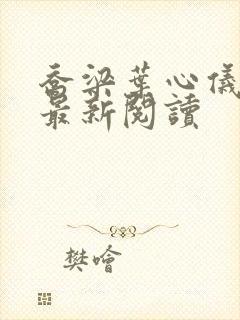 喬梁葉心儀
最新閱讀
樊噲